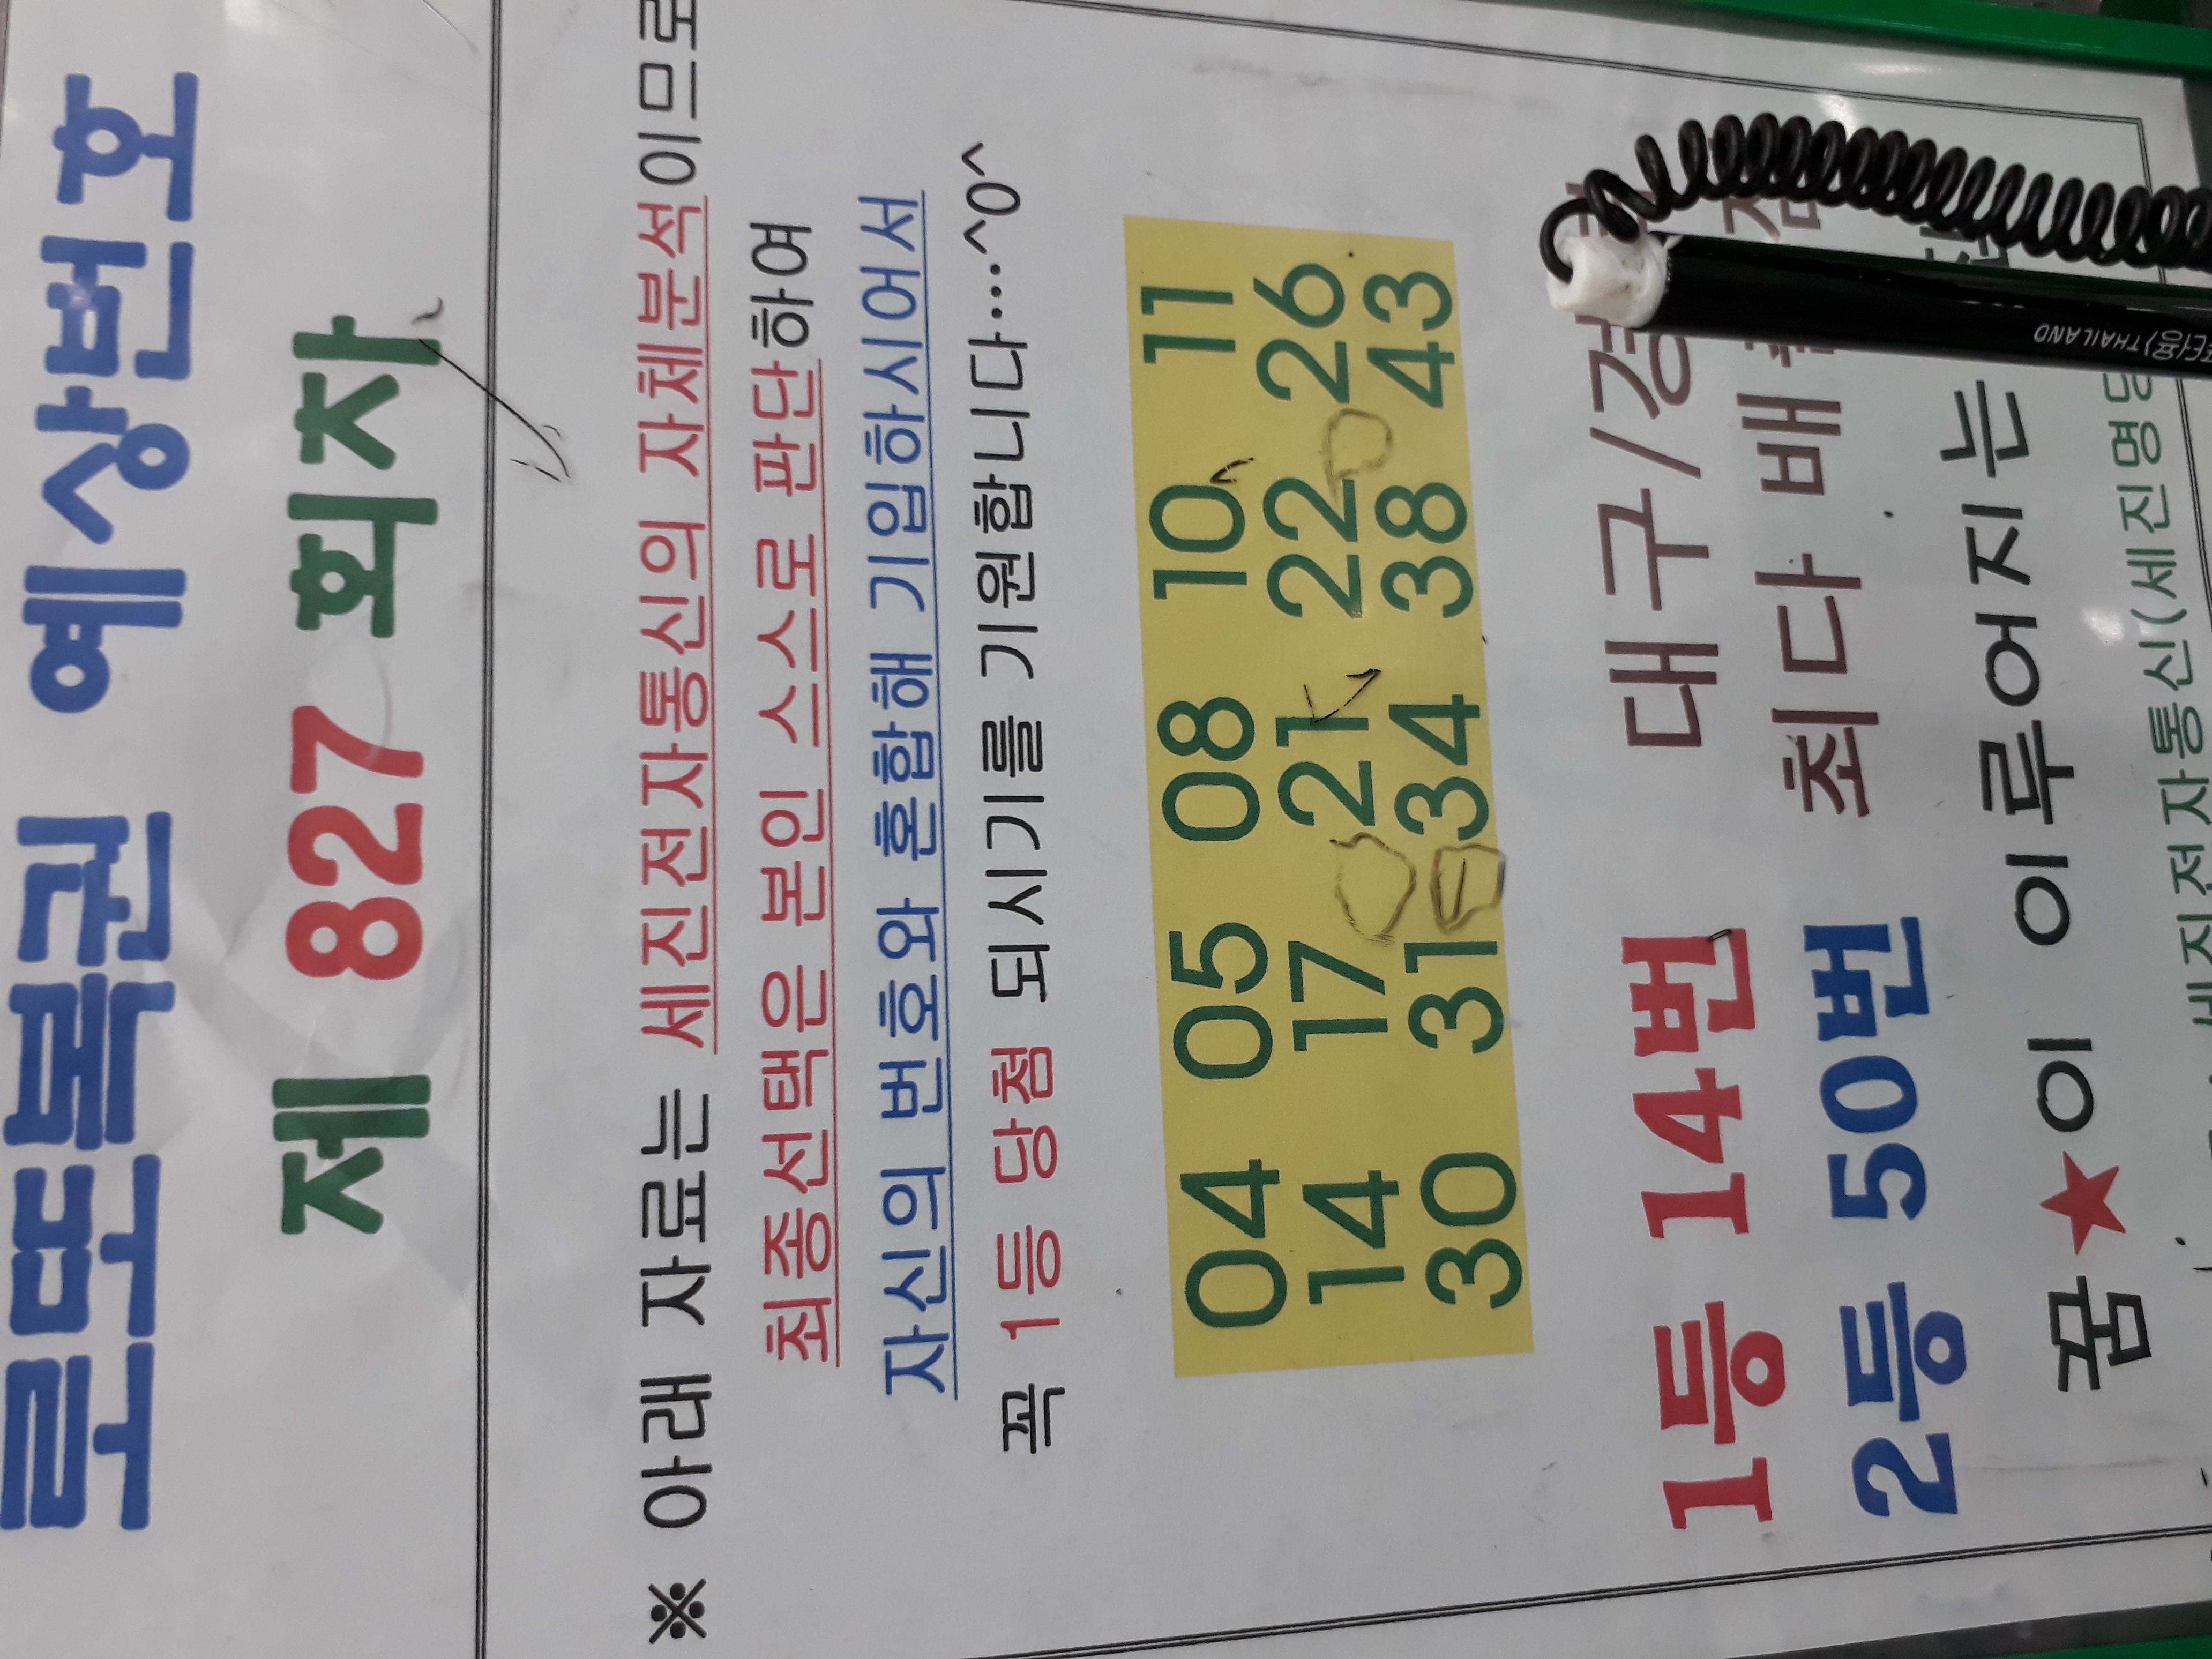 로또복권 예상번호
제 827 회차
※ 아래 자료는 세진전자통신의 자체분석이므로
최종선택은 본인 스스로 판단하여
자신의 번호와 혼합해 기입하시어서
꼭 1등 당첨 되시기를 기원합니다....^0^
04 05 08 10 11
14 17 21 22 26
30 31 34 38 43
1등 14번 대구/경
2등 50번 최다 배
꿈★이 이루어지는
세진전자통신(세진명당
THAILAND